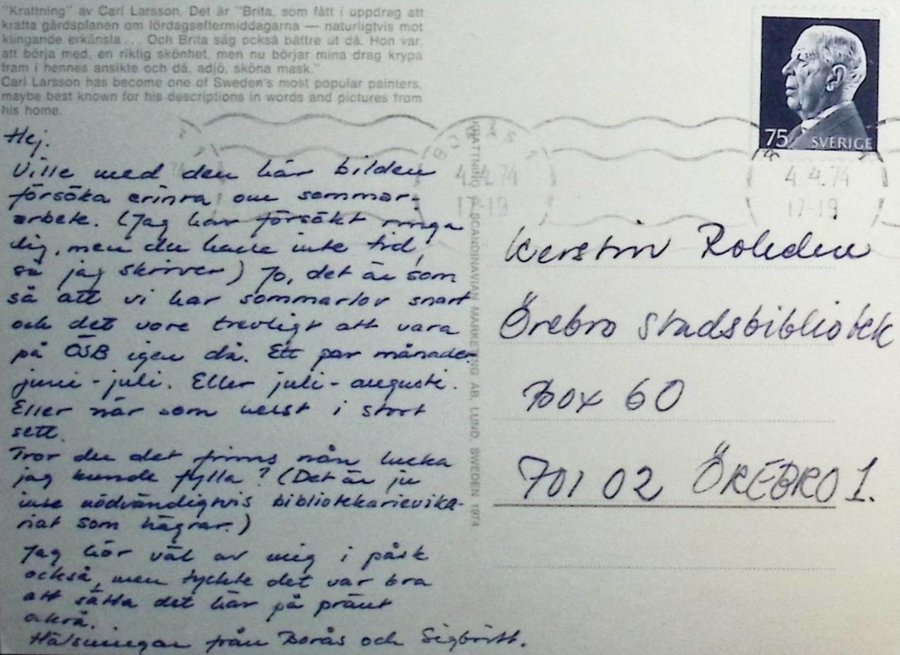 "Krattning" av Carl Larsson. Det är "Brita, som fått i uppdrag att
kratta gårdsplanen om lördagseftermiddagarna — naturligtvis mot
klingande erkänsla ... Och Brita såg också bättre ut då. Hon var,
att börja med, en riktig skönhet, men nu börjar mina drag krypa
fram i hennes ansikte och då, adjö, sköna mask."
Carl Larsson has become one of Sweden's most popular painters,
maybe best known for his descriptions in words and pictures from
his home.
Hej.
Ville med den här bilden
försöka erinra om sommar-
arbete. (Jag har försökt ringa
dig, men du hade inte tid,
så jag skriver) Jo, det är som
så att vi har sommarlov snart
och det vore trevligt att vara
på ÖSB igen då. Ett par månader
juni - juli. Eller juli - augusti.
Eller när som helst i stort
sett.
Tror du det finns nån lucka
jag kunde fylla? (Det är ju
inte nödvändigtvis bibliotekarievika-
riat som hägrar.)
Jag hör väl av mig i påsk
också, men tyckte det var bra
att sätta det här på pränt
också.
Hälsningar från Borås och Sigbritt.
KRATTNING SCANDINAVIAN MARKETING AB, LUND, SWEDEN 1974
75 SVERIGE
BORÅS 1
4.4.74
17-19
4.4.74
17-19
Kerstin
Örebro Stadsbibliotek
Box 60
701 02 ÖREBRO 1.